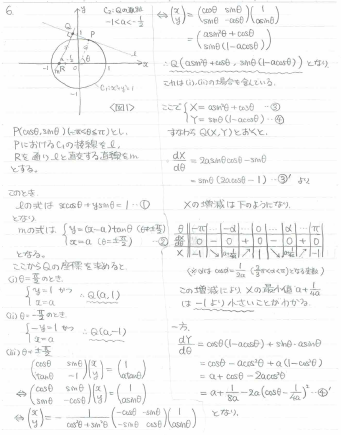 6
C₂: Qの軌跡
-1<a<-1/2
y
Q
P
l
1
m
-1
R
0
θ
1
x
C₁: x²+y²=1
<図1>
P(cosθ, sinθ) (-π≦θ≦π)とし、
PにおけるC₁の接線をl、
Rを通りlと直交する直線をm
とする。
このとき、
lの式は xcosθ+ysinθ=1 …①
となり
mの式は { y=(x-a)tanθ (θ≠±π/2)
x=a (θ=±π/2) …②
となる。
ここからQの座標を求めると
(i) θ=π/2のとき、
{ y=1 かつ
x=a ∴Q(a,1)
(ii) θ=-π/2のとき、
{ -y=1 かつ
x=a ∴Q(a,-1)
(iii) θ≠±π/2
(cosθ sinθ / tanθ -1)(x / y)=(1 / atanθ)
⇔(cosθ sinθ / sinθ -cosθ)(x / y)=(1 / asinθ)
⇔(x / y)=-1/(cos²θ+sin²θ)(-cosθ -sinθ / -sinθ cosθ)(1 / asinθ)
⇔(x / y)=(cosθ sinθ / sinθ -cosθ)(1 / asinθ)
=(asin²θ+cosθ / sinθ(1-acosθ))
∴Q(asin²θ+cosθ, sinθ(1-acosθ))となり
これは(i),(ii)の場合を含んでいる。
ここで { X=asin²θ+cosθ …③
Y=sinθ(1-acosθ) …④
すなわち Q(X,Y)とおくと、
dX/dθ=2asinθcosθ-sinθ
=sinθ(2acosθ-1) …③' より
Xの増減は下のようになり、
θ | -π | … | -α | … | 0 | … | α | … | π
dX/dθ | 0 | - | 0 | + | 0 | - | 0 | + | 0
X | -1 | ↘ | a+1/4a | ↗ | 1 | ↘ | a+1/4a | ↗ | -1
この増減により Xの最小値 a+1/4a
は -1より小さいことがわかる。
一方、
dY/dθ=cosθ(1-acosθ)+sinθ·asinθ
=cosθ-acos²θ+a(1-cos²θ)
=a+cosθ-2acos²θ
=a+1/8a-2a(cosθ-1/4a)² …④'
となり、